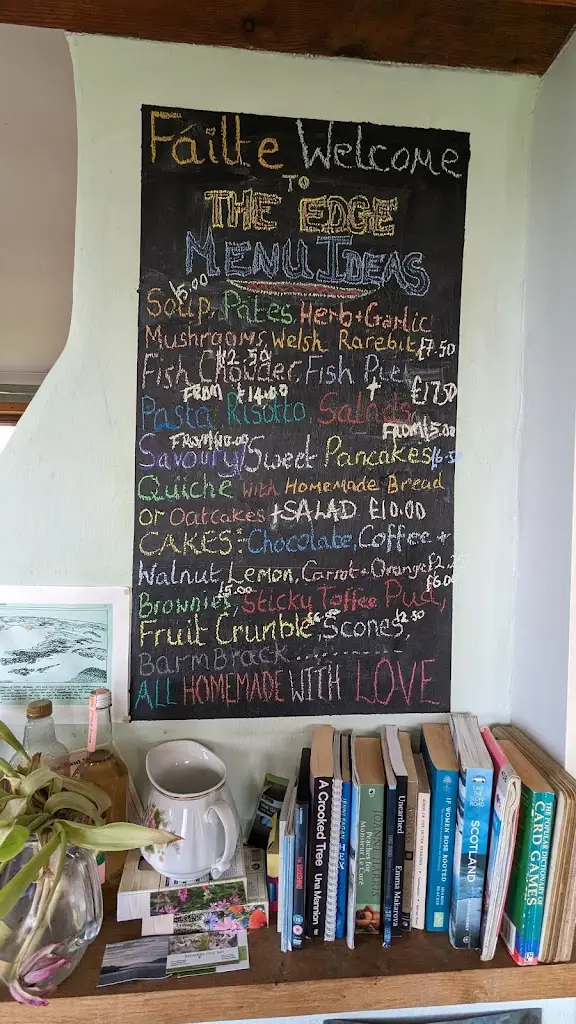 Fáilte Welcome
TO
THE EDGE
MENU IDEAS
£5.00
Soup, Pâtes, Herb + Garlic
Mushrooms, Welsh Rarebit £7.50
£12.50
Fish Chowder, Fish Pie
FROM £14.00 + £17.50
Pasta Risotto, Salads
FROM £10.00 FROM £5.00
Savoury/Sweet Pancakes £6.50
Quiche with Homemade Bread
or Oatcakes + SALAD £10.00
CAKES: Chocolate, Coffee +
Walnut, Lemon, Carrot + Orange
£5.00 £6.00
Brownies, Sticky Toffee Pud,
£6.00 £2.50
Fruit Crumble, Scones,
BarmBrack
ALL HOMEMADE WITH LOVE
A Crooked Tree Una Mannion
HEX
Peaches for Monsieur le Curé
Unearthed Emma Makarova
IF WOMEN ROSE ROOTED
SCOTLAND
THE POPULAR DICTIONARY OF
CARD GAMES